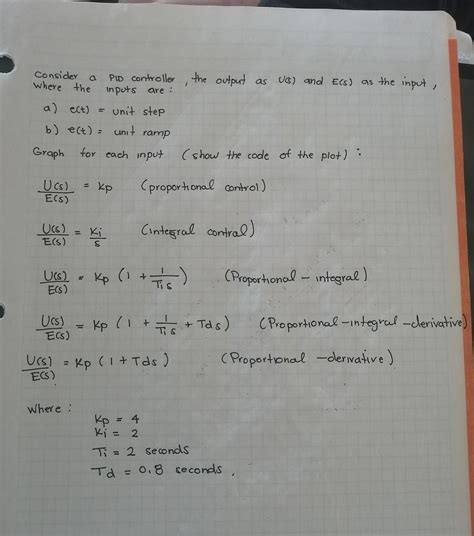 Consider a PID controller, the output as U(s) and E(s) as the input,
where the inputs are:
a) e(t) = unit step
b) e(t) = unit ramp
Graph for each input (show the code of the plot):
U(s)/E(s) = Kp (proportional control)
U(s)/E(s) = Ki/s (integral control)
U(s)/E(s) = Kp (1 + 1/Ti s) (Proportional - integral)
U(s)/E(s) = Kp (1 + 1/Ti s + Tds) (Proportional -integral -derivative)
U(s)/E(s) = Kp (1 + Tds) (Proportional -derivative)
Where:
Kp = 4
Ki = 2
Ti = 2 seconds
Td = 0,8 seconds.